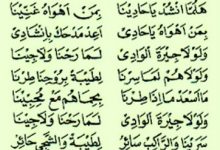 هَلُمَّ انْشُدْ يَاحَادِيْنَا بِمَنْ اَهْوَاهُ غَنِّيْنَا
بِمَنْ اَهْوَاهُ يَاحَادِيْ اَعِدْ مَدْحَكَ بِاِنْشَادِيْ
وَلَوْلَا جِيْرَةُ الْوَادِيْ لَمَا رُحْنَا وَلَاجِيْنَا
وَلَوْلَاهُمْ لَمَا سِرْنَا لِطَيْبَةْ بِرَوْحِنَا طِرْنَا
مَا اَسْعَدْ مَا اِذَا طِرْنَا بِحِمَاهُمْ مَعْ مُحِبِّيْنَا
وَلَوْلَا جِيْرَةُ الْوَادِيْ لَمَا رُحْنَا وَلَاجِيْنَا
سَرَيْنَا وَالرَّاكِبْ سَائِرْ لِطَيْبَةْ وَالشَّجِيْ حَائِرْ